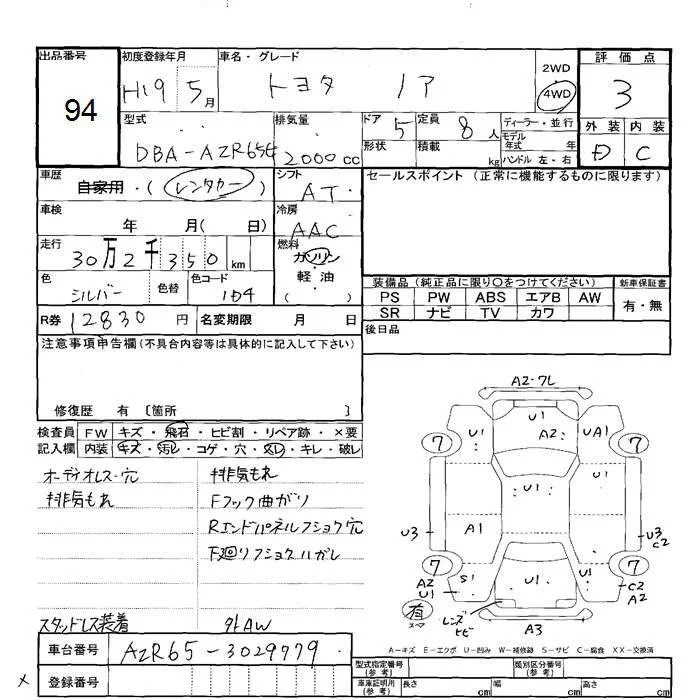 出品番号 初度登録年月 車名・グレード 評価点
94 H19 5月 トヨタ ノア 2WD 4WD 3
型式 排気量 ドア 5 定員 8人 ディーラー・並行 外装 内装
DBA-AZR65G 2000cc 形状 積載 kg モデル年式 年 D C
ハンドル 左・右
車歴 自家用・(レンタカー) シフト AT セールスポイント (正常に機能するものに限ります)
車検 年 月( 日) 冷房 AAC
走行 30万2千350km 燃料 ガソリン
軽油
( )
色 シルバー 色替 色コード 1D4
装備品(純正品に限り○をつけてください) 新車保証書
PS PW ABS エアB AW 有・無
SR ナビ TV カワ
R券 12830円 名変期限 月 日 後日品
注意事項申告欄(不具合内容等は具体的に記入して下さい)
修復歴 有 〔箇所 〕
検査員 FW キズ・飛石・ヒビ割・リペア跡・×要
記入欄 内装 キズ・汚レ・コゲ・穴・スレ・キレ・破レ
オーディオレス・穴 排気もれ
排気もれ Fフック曲がり
Rエンドパネルフショク穴
下廻りフショクハガレ
スタッドレス装着 外AW
A2-ワレ
U1 A2
7 U1 UA1 7
U1 U1
U3 A1 U3 C2
7 7
A2 U1 S1 U1 U1 C2 A2
有
スペア
レンズヒビ
A3
A-キズ E-エクボ U-凹み W-補修跡 S-サビ C-腐食 XX-交換済
車台番号 AZR65-3029779
登録番号
型式指定番号(参考) 類別区分番号(参考)
車庫証明用(参考) 長さ cm 幅 cm 高さ cm
×